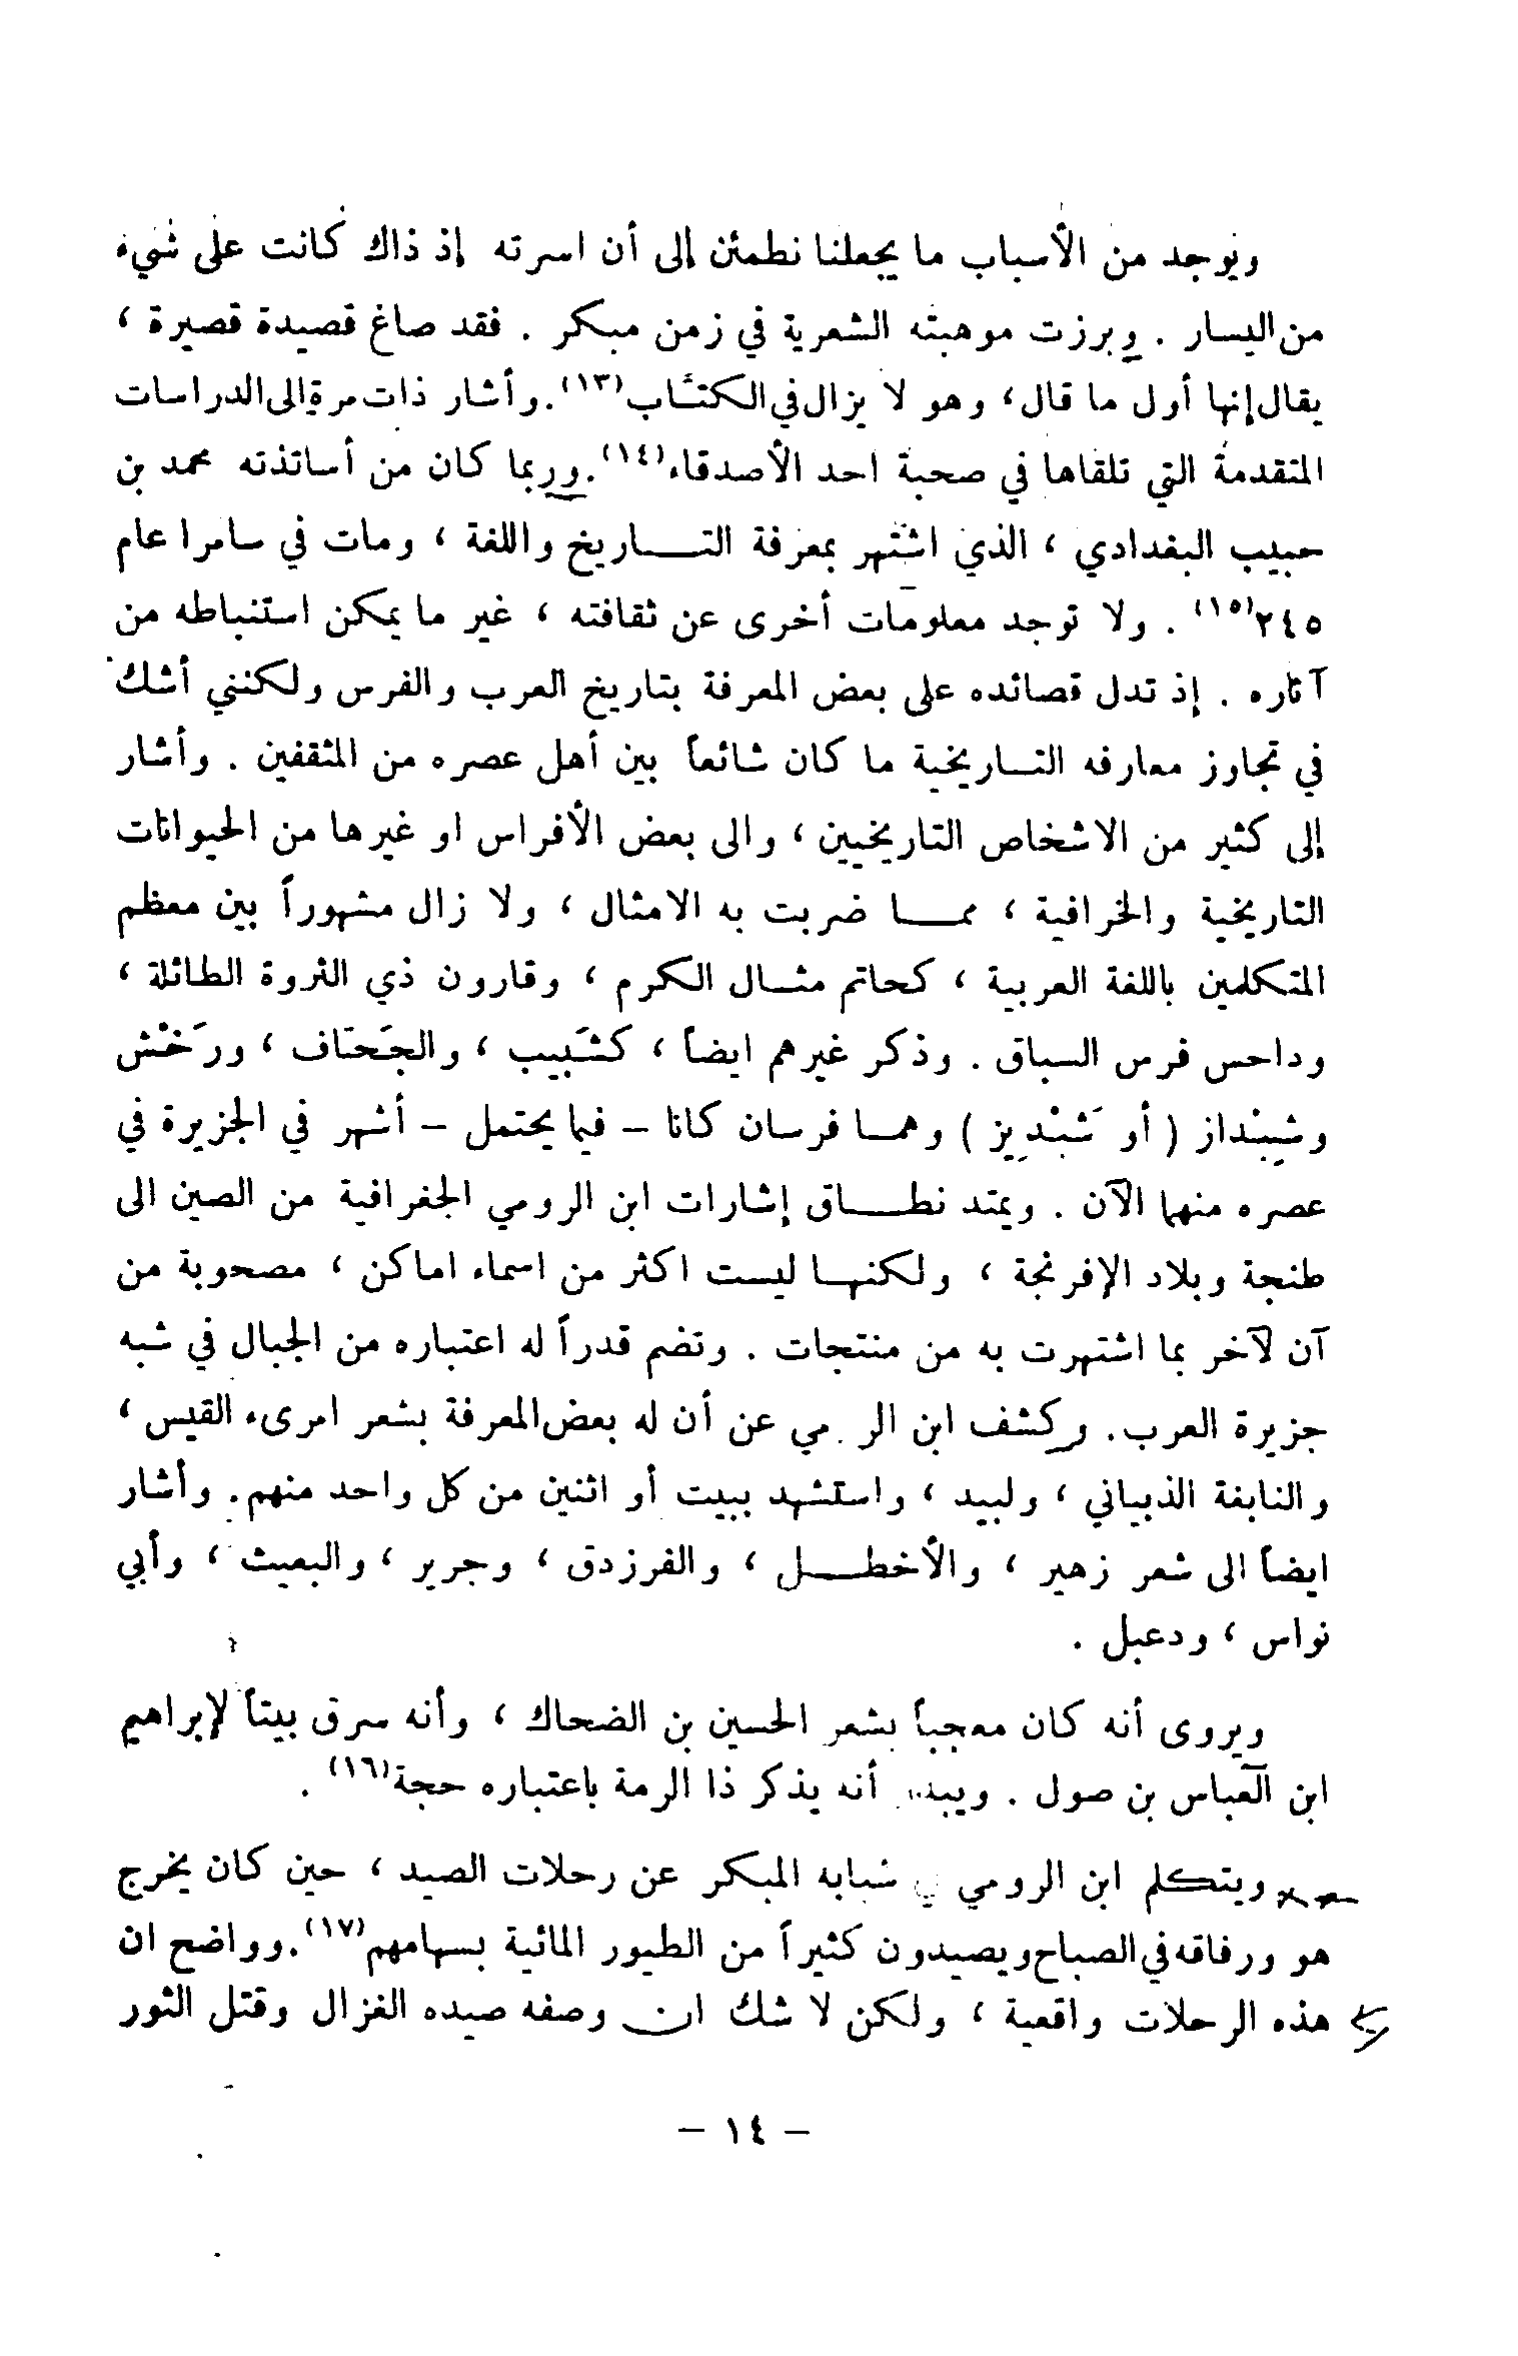 ويوجد من الأسباب ما يجعلنا نطمئن إلى أن اسرته إذ ذاك كانت على شيء
من اليسار . وبرزت موهبته الشعرية في زمن مبكر . فقد صاغ قصيدة قصيرة ،
يقال إنها أول ما قال ، وهو لا يزال في الكتّاب(١٣). وأشار ذات مرة إلى الدراسات
المتقدمة التي تلقاها في صحبة احد الأصدقاء(١٤). وربما كان من أساتذته محمد بن
حبيب البغدادي ، الذي اشتهر بمعرفة التـاريخ واللغة ، ومات في سامرا عام
٢٤٥(١٥) . ولا توجد معلومات أخرى عن ثقافته ، غير ما يمكن استنباطه من
آثاره . إذ تدل قصائده على بعض المعرفة بتاريخ العرب والفرس ولكنني أشك
في تجاوز معارفه التـاريخية ما كان شائعاً بين أهل عصره من المثقفين . وأشار
إلى كثير من الاشخاص التاريخيين ، والى بعض الأفراس او غيرها من الحيوانات
التاريخية والخرافية ، ممـا ضربت به الامثال ، ولا زال مشهوراً بين معظم
المتكلمين باللغة العربية ، كحاتم مثـال الكرم ، وقارون ذي الثروة الطائلة ،
وداحس فرس السباق . وذكر غيرهم ايضاً ، كشَبيب ، والجَحَاف ، ورَخْش
وشِبْنداز ( أو شَبْدِيز ) وهمـا فرسان كانا – فيما يحتمل – أشهر في الجزيرة في
عصره منهما الآن . ويمتد نطـاق إشارات ابن الرومي الجغرافية من الصين الى
طنجة وبلاد الإفرنجة ، ولكنهـا ليست اكثر من اسماء اماكن ، مصحوبة من
آن لآخر بما اشتهرت به من منتجات . وتضم قدراً له اعتباره من الجبال في شبه
جزيرة العرب. وكشف ابن الر مي عن أن له بعض المعرفة بشعر امرىء القيس ،
والنابغة الذبياني ، ولبيد ، واستشهد ببيت أو اثنين من كل واحد منهم. وأشار
ايضاً الى شعر زهير ، والأخطـل ، والفرزدق ، وجرير ، والبعيث ، وأبي
نواس ، ودعبل .
ويروى أنه كان معجباً بشعر الحسين بن الضحاك ، وأنه سرق بيتاً لإبراهيم
ابن العباس بن صول . ويبدو أنه يذكر ذا الرمة باعتباره حجة(١٦) .
ويتكلم ابن الرومي في شبابه المبكر عن رحلات الصيد ، حين كان يخرج
هو ورفاقه في الصباح ويصيدون كثيراً من الطيور المائية بسهامهم(١٧). وواضح ان
هذه الرحلات واقعية ، ولكن لا شك ان وصفه صيده الغزال وقتل الثور
– ١٤ –